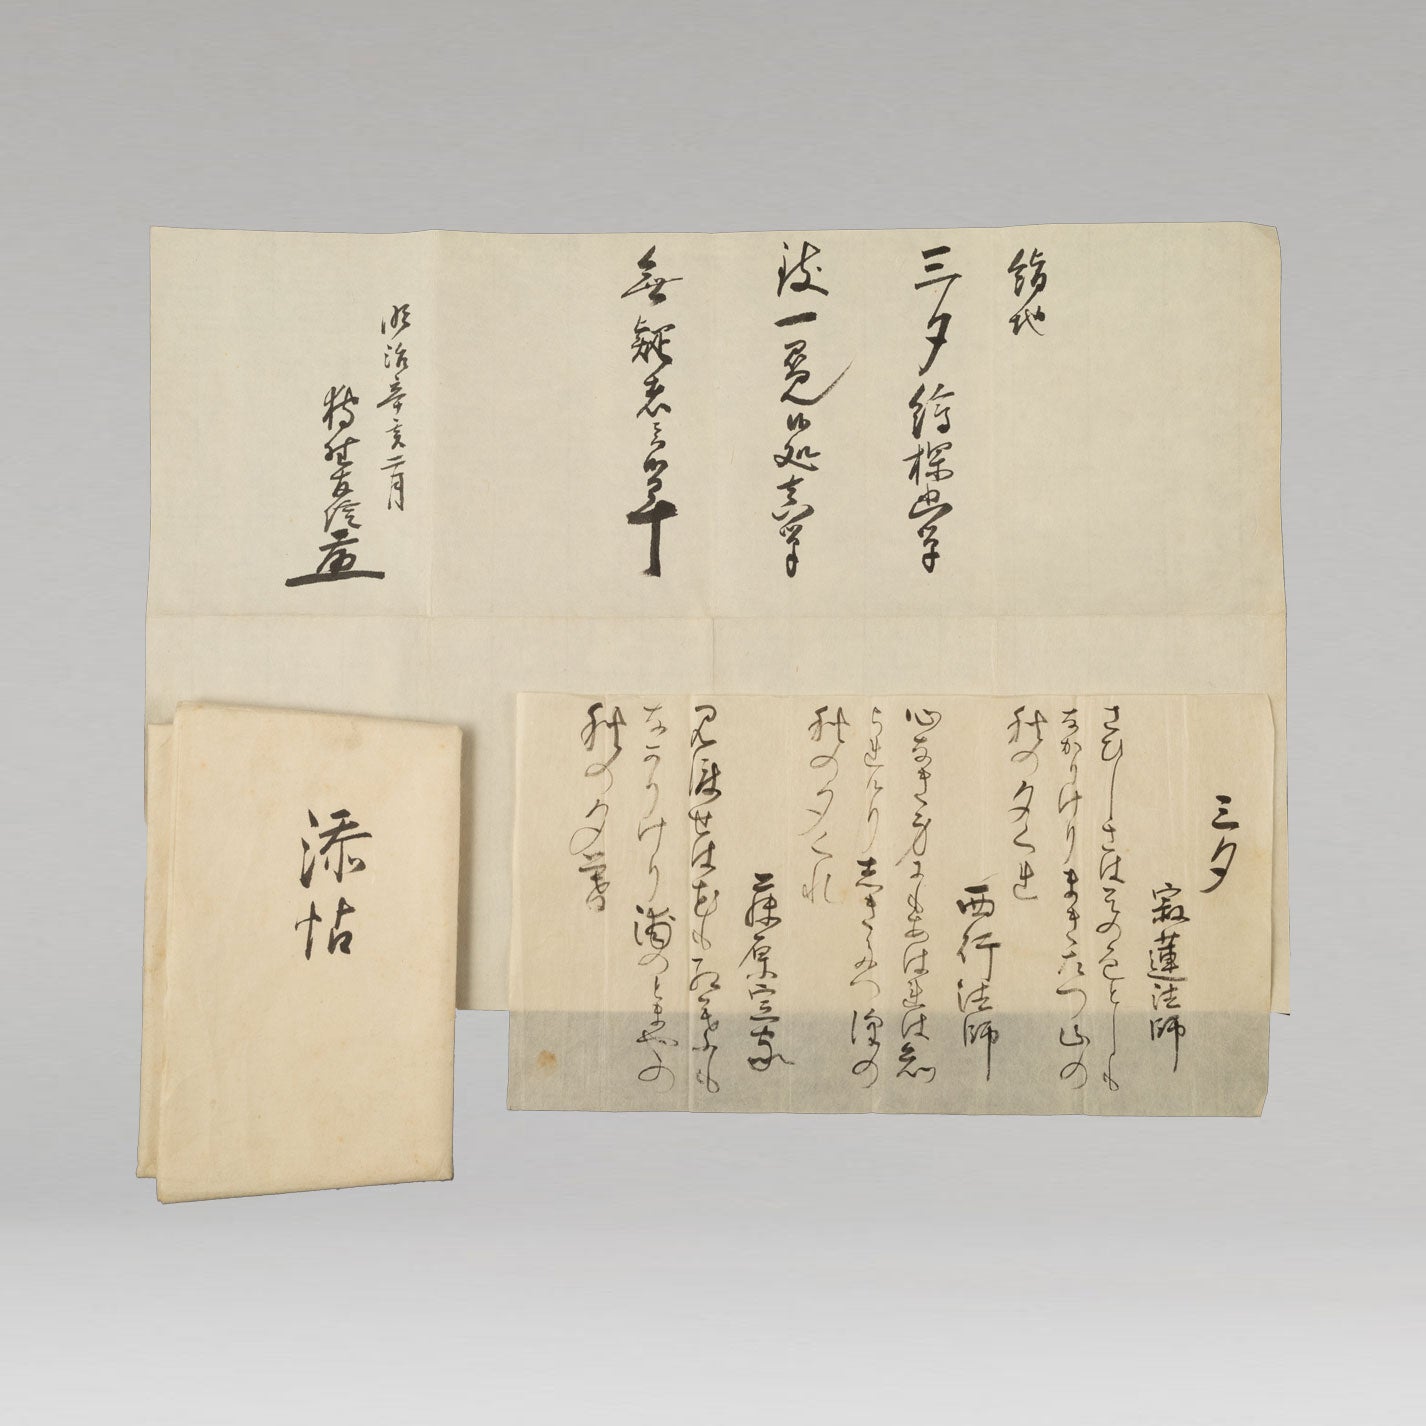 絹地
三夕絵探幽筆
致一覧候処真筆
無疑者也
明治辛亥二月
三夕
寂蓮法師
さひしさはその色としも
なかりけりまき立つ山の
秋の夕くれ
西行法師
心なき身にもあはれは
しられけりしきたつ沢の
秋の夕くれ
藤原定家
見渡せは花も紅葉も
なかりけり浦のとまやの
秋の夕暮
添帖